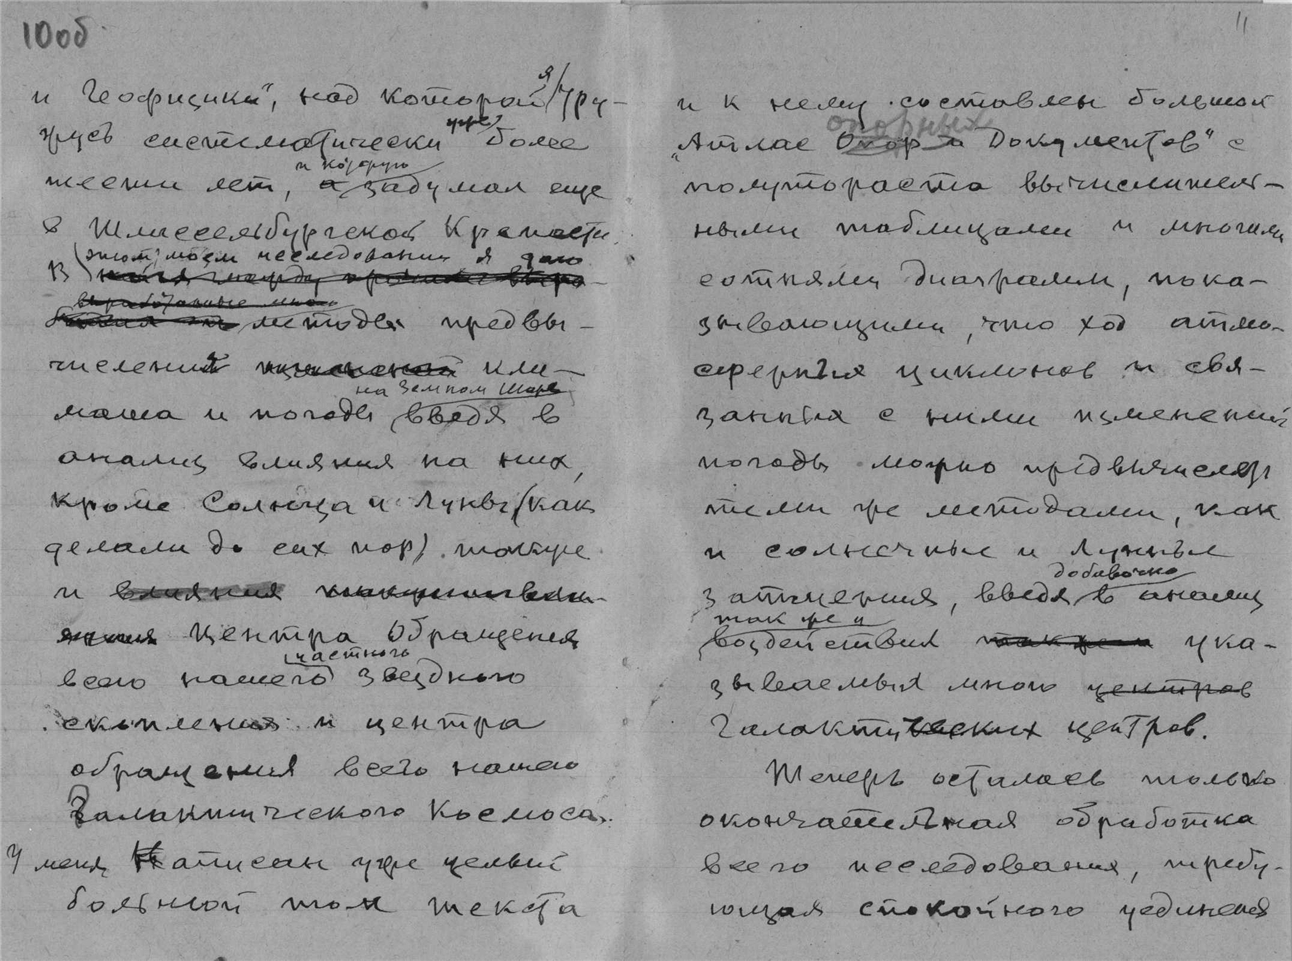 10об
и Геофизики", над которой я тру-
жусь систематически уже более
шести лет, и которую задумал еще
в Шлиссельбургской Крепости.
В этом моем исследовании я даю
выработанные мною
методы предвы-
числений кли-
мата и погоды на Земном Шаре введя в
анализ влияния на них,
кроме Солнца и Луны (как
делали до сих пор) также
и влияния
Центра Обращения
всего нашего частного звездного
скопления и центра
обращения всего нашего
Галактического Космоса.
У меня Написан уже целый
большой том текста
11
и к нему составлен большой
опорных
„Атлас Опорн Документов" с
полутораста вычислитель-
ными таблицами и многими
сотнями диаграмм, пока-
зывающими, что ход атмо-
сферных циклонов и свя-
занных с ними изменений
погоды можно предвычислять
теми же методами, как
и солнечные и Лунные
затмения, введя добавочно в анализ
так же и
воздействия также ука-
зываемых мною центров
Галактических центров.
Теперь осталась только
окончательная обработка
всего исследования, требу-
ющая спокойного уединения